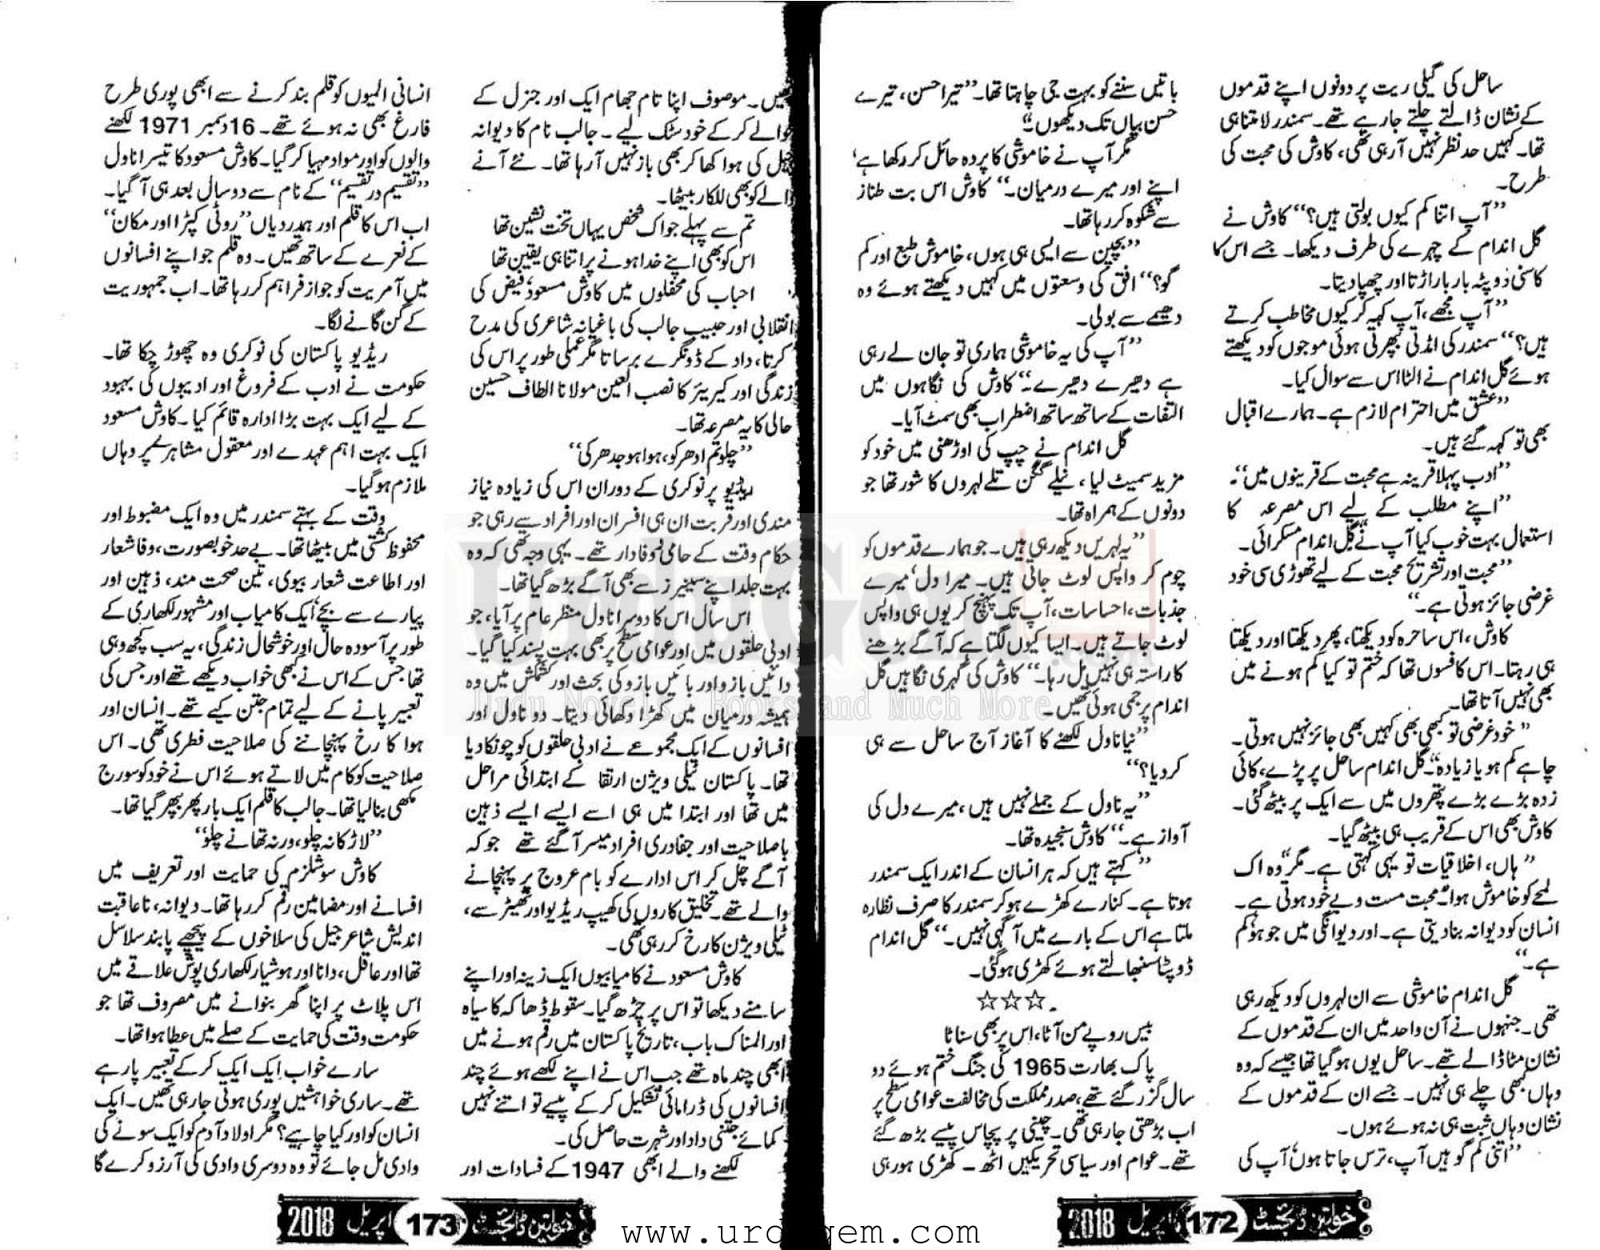 ساحل کی گیلی ریت پر دونوں اپنے قدموں
کے نشان ڈالتے چلتے جارہے تھے۔ سمندر لامتناہی
تھا۔ کہیں حد نظر نہیں آرہی تھی، کاوش کی محبت کی
طرح۔
”آپ اتنا کم کیوں بولتی ہیں؟“ کاوش نے
گل اندام کے چہرے کی طرف دیکھا۔ جسے اس کا
کاسنی دوپٹہ بار بار اڑتا اور چھپا دیتا۔
”آپ مجھے، آپ کہہ کر کیوں مخاطب کرتے
ہیں؟“ سمندر کی امڈتی بھرتی ہوئی موجوں کو دیکھتے
ہوئے گل اندام نے الٹا اس سے سوال کیا۔
”عشق میں احترام لازم ہے۔ ہمارے اقبال
بھی تو کہہ گئے ہیں۔
”ادب پہلا قرینہ ہے محبت کے قرینوں میں“۔
”اپنے مطلب کے لیے اس مصرعہ کا
استعمال بہت خوب کیا آپ نے“ گل اندام مسکرائی۔
”محبت اور تشریح محبت کے لیے تھوڑی سی خود
غرضی جائز ہوتی ہے۔“
کاوش، اس ساحرہ کو دیکھتا، پھر دیکھتا اور دیکھتا
ہی رہتا۔ اس کا فسوں تھا کہ ختم تو کیا کم ہونے میں
بھی نہیں آتا تھا۔
”خود غرضی تو کبھی بھی کہیں بھی جائز نہیں ہوتی۔
چاہے کم ہو یا زیادہ“۔ گل اندام ساحل پر پڑے، کائی
زدہ بڑے بڑے پتھروں میں سے ایک پر بیٹھ گئی۔
کاوش بھی اس کے قریب ہی بیٹھ گیا۔
”ہاں، اخلاقیات تو یہی کہتی ہے۔ مگر“ وہ اک
لمحے کو خاموش ہوا ”محبت مست وبے خود ہوتی ہے۔
انسان کو دیوانہ بنا دیتی ہے۔ اور دیوانگی میں جو ہو کم
ہے۔“
گل اندام خاموشی سے ان لہروں کو دیکھ رہی
تھی۔ جنہوں نے آن واحد میں ان کے قدموں کے
نشان مٹا ڈالے تھے۔ ساحل یوں ہو گیا تھا جیسے کہ وہ
وہاں کبھی چلے ہی نہیں۔ جسے ان کے قدموں کے
نشان وہاں ثبت ہی نہ ہوئے ہوں۔
”اتنی کم گو ہیں آپ، ترس جاتا ہوں آپ کی
باتیں سننے کو بہت جی چاہتا تھا۔ ”تیرا حسن، تیرے
حسن بیاں تک دیکھوں۔“
مگر آپ نے خاموشی کا پردہ حائل کر رکھا ہے
اپنے اور میرے درمیان۔“ کاوش اس بت طناز
سے شکوہ کررہا تھا۔
”بچپن سے ایسی ہی ہوں، خاموش طبع اور کم
گو؟“ افق کی وسعتوں میں کہیں دیکھتے ہوئے وہ
دھیمے سے بولی۔
”آپ کی یہ خاموشی ہماری تو جان لے رہی
ہے دھیرے دھیرے۔“ کاوش کی نگاہوں میں
التفات کے ساتھ ساتھ اضطراب بھی سمٹ آیا۔
گل اندام نے چپ کی اوڑھنی میں خود کو
مزید سمیٹ لیا، نیلے گگن تلے لہروں کا شور تھا جو
دونوں کے ہمراہ تھا۔
”یہ لہریں دیکھ رہی ہیں۔ جو ہمارے قدموں کو
چوم کر واپس لوٹ جاتی ہیں۔ میرا دل، میرے
جذبات، احساسات، آپ تک پہنچ کر یوں ہی واپس
لوٹ جاتے ہیں۔ ایسا کیوں لگتا ہے کہ آگے بڑھنے
کا راستہ ہی نہیں مل رہا۔“ کاوش کی گہری نگاہیں گل
اندام پر جمی ہوئی تھیں۔
”نیا ناول لکھنے کا آغاز آج ساحل سے ہی
کردیا؟“
”یہ ناول کے جملے نہیں ہیں، میرے دل کی
آواز ہے۔“ کاوش سنجیدہ تھا۔
”کہتے ہیں کہ ہر انسان کے اندر ایک سمندر
ہوتا ہے۔ کنارے کھڑے ہو کر سمندر کا صرف نظارہ
ملتا ہے اس کے بارے میں آگہی نہیں۔“ گل اندام
ڈوپٹا سنبھالتے ہوئے کھڑی ہوگئی۔
☆☆☆
بیس روپے من آٹا، اس پر بھی سناٹا
پاک بھارت 1965 کی جنگ ختم ہوئے دو
سال گزر گئے تھے، صدر مملکت کی مخالفت عوامی سطح پر
اب بڑھتی جارہی تھی۔ چینی پر پچاس پیسے بڑھ گئے
تھے۔ عوام اور سیاسی تحریکیں اٹھ۔ کھڑی ہورہی
خواتین ڈائجسٹ 172 اپریل 2018
تھیں۔ موصوف اپنا تام جھام ایک اور جنرل کے
حوالے کرکے خود سٹک لیے۔ جالب نام کا دیوانہ
جیل کی ہوا کھا کر بھی باز نہیں آرہا تھا۔ نئے آنے
والے کو بھی للکار بیٹھا۔
تم سے پہلے جو اک شخص یہاں تخت نشین تھا
اس کو بھی اپنے خدا ہونے پر اتنا ہی یقین تھا
احباب کی محفلوں میں کاوش مسعود، فیض کی
انقلابی اور حبیب جالب کی باغیانہ شاعری کی مدح
کرتا، داد کے ڈونگرے برساتا مگر عملی طور پر اس کی
زندگی اور کیریئر کا نصب العین مولانا الطاف حسین
حالی کا یہ مصرعہ تھا۔
”چلو تم ادھر کو، ہوا ہو جدھر کی“
ریڈیو پر نوکری کے دوران اس کی زیادہ نیاز
مندی اور قربت ان ہی افسران اور افراد سے رہی جو
حکام وقت کے حامی و وفادار تھے۔ یہی وجہ تھی کہ وہ
بہت جلد اپنے سینیئرز سے بھی آگے بڑھ گیا تھا۔
اس سال اس کا دوسرا ناول منظر عام پر آیا، جو
ادبی حلقوں میں اور عوامی سطح پر بھی بہت پسند کیا گیا۔
دائیں بازو اور بائیں بازو کی بحث اور کشمکش میں وہ
ہمیشہ درمیان میں کھڑا دکھائی دیتا۔ دو ناول اور
افسانوں کے ایک مجموعے نے ادبی حلقوں کو چونکا دیا
تھا۔ پاکستان ٹیلی ویژن ارتقا کے ابتدائی مراحل
میں تھا اور ابتدا میں ہی اسے ایسے ایسے ذہین
باصلاحیت اور جغادری افراد میسر آگئے تھے جو کہ
آگے چل کر اس ادارے کو بام عروج پر پہنچانے
والے تھے۔ تخلیق کاروں کی کھیپ ریڈیو اور تھیٹر سے،
ٹیلی ویژن کا رخ کررہی تھی۔
کاوش مسعود نے کامیابیوں ایک زینہ اور اپنے
سامنے دیکھا تو اس پر چڑھ گیا۔ سقوط ڈھاکہ کا سیاہ
اور المناک باب، تاریخ پاکستان میں رقم ہونے میں
ابھی چند ماہ تھے جب اس نے اپنے لکھے ہوئے چند
افسانوں کی ڈرامائی تشکیل کرکے پیسے تو اتنے نہیں
کمائے جتنی داد اور شہرت حاصل کی۔
لکھنے والے ابھی 1947 کے فسادات اور
انسانی المیوں کو قلم بند کرنے سے ابھی پوری طرح
فارغ بھی نہ ہوئے تھے۔ 16 دسمبر 1971 لکھنے
والوں کو اور مواد مہیا کرگیا۔ کاوش مسعود کا تیسرا ناول
”تقسیم در تقسیم“ کے نام سے دو سال بعد ہی آگیا۔
اب اس کا قلم اور ہمدردیاں ”روٹی کپڑا اور مکان“
کے نعرے کے ساتھ تھیں۔ وہ قلم جو اپنے افسانوں
میں آمریت کو جواز فراہم کررہا تھا۔ اب جمہوریت
کے گن گانے لگا۔
ریڈیو پاکستان کی نوکری وہ چھوڑ چکا تھا۔
حکومت نے ادب کے فروغ اور ادیبوں کی بہبود
کے لیے ایک بہت بڑا ادارہ قائم کیا۔ کاوش مسعود
ایک بہت اہم عہدے اور معقول مشاہرے پر وہاں
ملازم ہوگیا۔
وقت کے بہتے سمندر میں وہ ایک مضبوط اور
محفوظ کشتی میں بیٹھا تھا۔ بے حد خوبصورت، وفا شعار
اور اطاعت شعار بیوی، تین صحت مند، ذہین اور
پیارے سے بچے، ایک کامیاب اور مشہور لکھاری کے
طور پر آسودہ حال اور خوشحال زندگی، یہ سب کچھ وہی
تھا جس کے اس نے بھی خواب دیکھے تھے اور جس کی
تعبیر پانے کے لیے تمام جتن کیے تھے۔ انسان اور
ہوا کا رخ پہچاننے کی صلاحیت فطری تھی۔ اس
صلاحیت کو کام میں لاتے ہوئے اس نے خود کو سورج
مکھی بنا لیا تھا۔ جالب کا قلم ایک بار پھر بپھر گیا تھا۔
”لاڑکانہ چلو، ورنہ تھانے چلو“
کاوش سوشلزم کی حمایت اور تعریف میں
افسانے اور مضامین رقم کررہا تھا۔ دیوانہ، ناعاقبت
اندیش شاعر جیل کی سلاخوں کے پیچھے پابند سلاسل
تھا اور عاقل، دانا اور ہوشیار لکھاری پوش علاقے میں
اس پلاٹ پر اپنا گھر بنوانے میں مصروف تھا جو
حکومت وقت کی حمایت کے صلے میں عطا ہوا تھا۔
سارے خواب ایک ایک کرکے تعبیر پارہے
تھے۔ ساری خواہشیں پوری ہوتی جارہی تھیں۔ ایک
انسان کو اور کیا چاہیے؟ مگر اولاد آدم کو ایک سونے کی
وادی مل جائے تو وہ دوسری وادی کی آرزو کرے گا
خواتین ڈائجسٹ 173 اپریل 2018
UrduGem.com
Urdu Novels, Books and Much More
www.urdugem.com